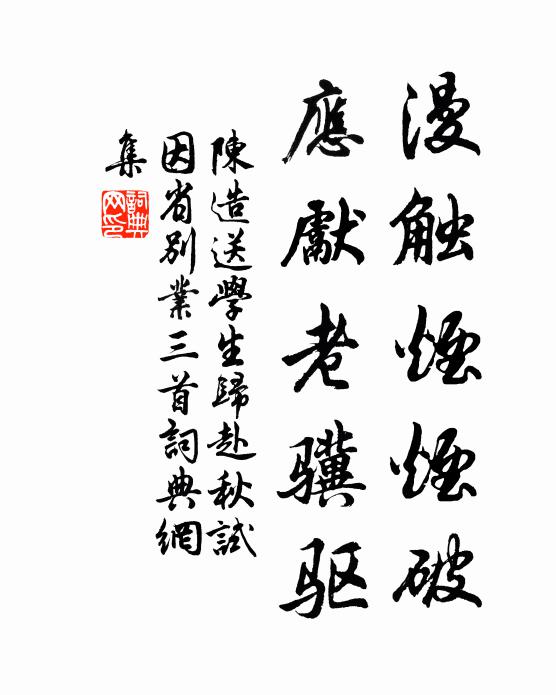 漫触煙煙破
應獻老骥驱
陳造送學生歸赴秋試
因省別業三首詞典網
集
詞典
网印